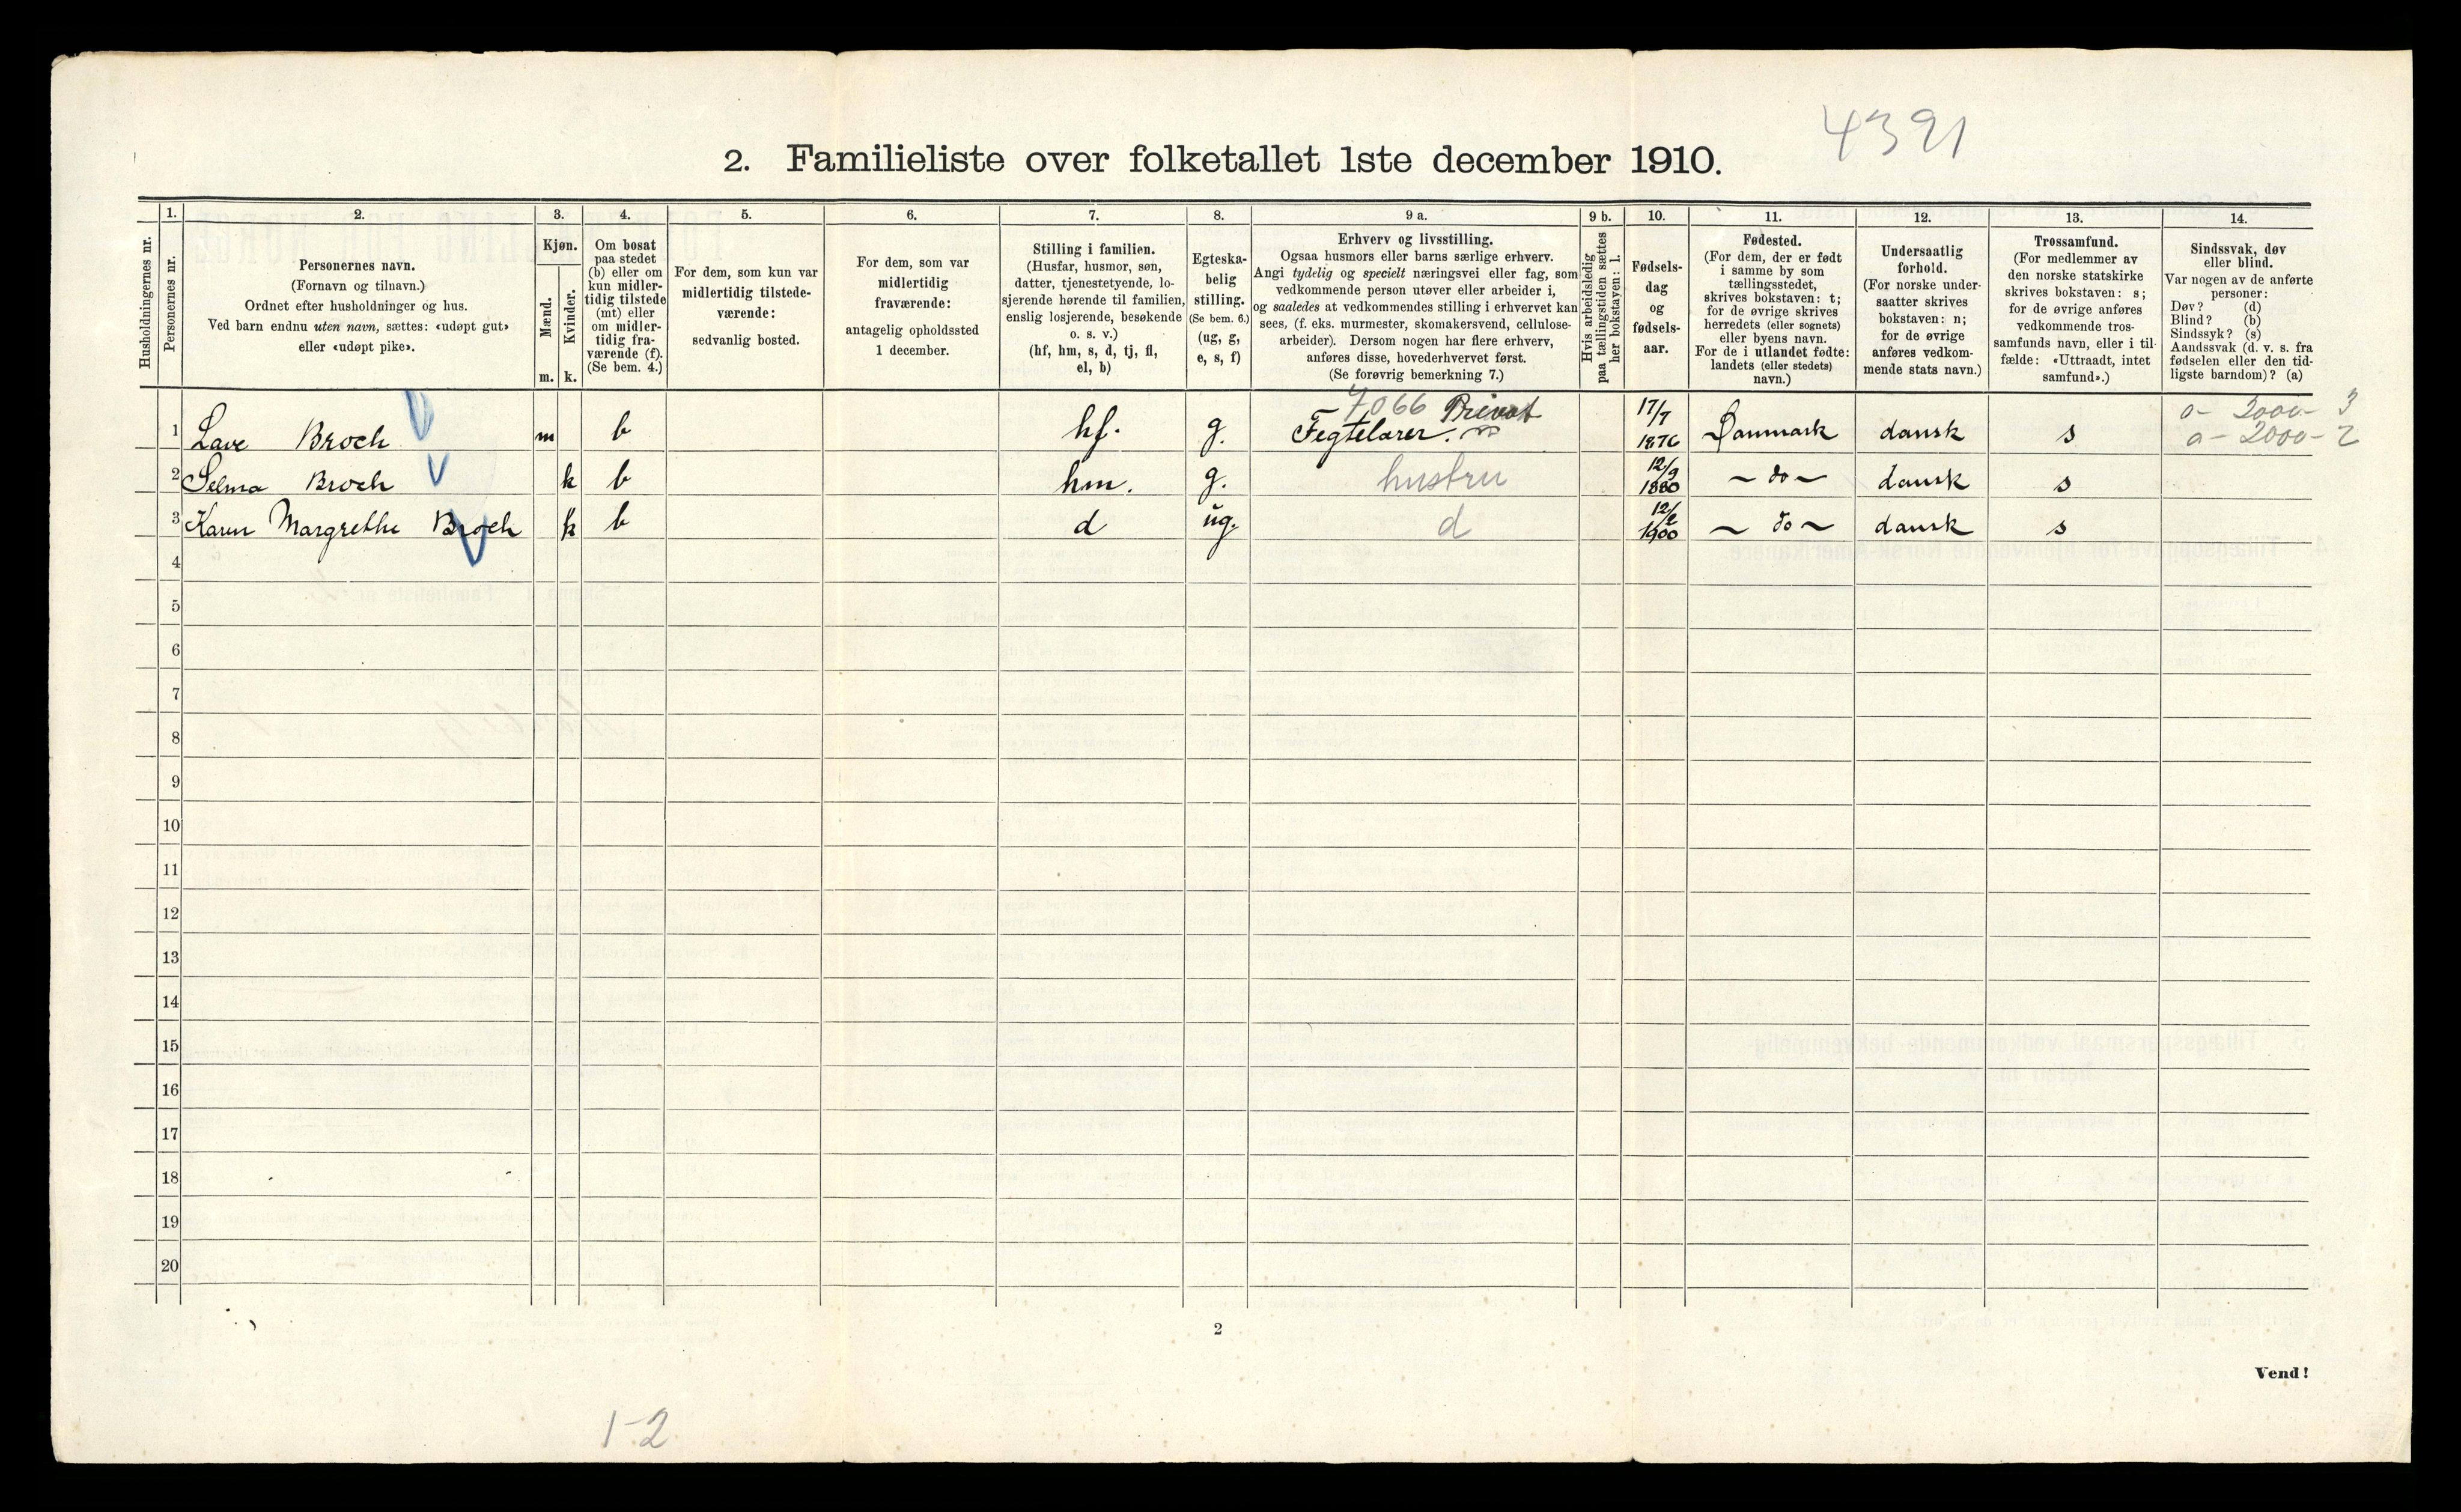 4391
2. Familieliste over folketallet 1ste december 1910.
Husholdningernes nr.
1.
Personernes nr.
2.
Personernes navn.
(Fornavn og tilnavn.)
Ordnet efter husholdninger og hus.
Ved barn endnu uten navn, sættes: «udøpt gut»
eller «udøpt pike».
3.
Kjøn.
Mænd.
Kvinder.
m. k.
4.
Om bosat
paa stedet
(b) eller om
kun midler-
tidig tilstede
(mt) eller
om midler-
tidig fra-
værende (f).
(Se bem. 4.)
5.
For dem, som kun var
midlertidig tilstede-
værende:
sedvanlig bosted.
6.
For dem, som var
midlertidig
fraværende:
antagelig opholdssted
1 december.
7.
Stilling i familien.
(Husfar, husmor, søn,
datter, tjenestetyende, lo-
sjerende hørende til familien,
enslig losjerende, besøkende
o. s. v.)
(hf, hm, s, d, tj, fl,
el, b)
8.
Egteska-
belig
stilling.
(Se bem. 6.)
(ug, g,
e, s, f)
9 a.
Erhverv og livsstilling.
Ogsaa husmors eller barns særlige erhverv.
Angi tydelig og specielt næringsvei eller fag, som
vedkommende person utøver eller arbeider i,
og saaledes at vedkommendes stilling i erhvervet kan
sees, (f. eks. murmester, skomakersvend, cellulose-
arbeider). Dersom nogen har flere erhverv,
anføres disse, hovederhvervet først.
(Se forøvrig bemerkning 7.)
9 b.
Hvis arbeidsledig
paa tællingstiden sættes
her bokstaven: l.
10.
Fødsels-
dag
og
fødsels-
aar.
11.
Fødested.
(For dem, der er født
i samme by som
tællingsstedet,
skrives bokstaven: t;
for de øvrige skrives
herredets (eller sognets)
eller byens navn.
For de i utlandet fødte:
landets (eller stedets)
navn.)
12.
Undersaatlig
forhold.
(For norske under-
saatter skrives
bokstaven: n;
for de øvrige
anføres vedkom-
mende stats navn.)
13.
Trossamfund.
(For medlemmer av
den norske statskirke
skrives bokstaven: s;
for de øvrige anføres
vedkommende tros-
samfunds navn, eller i til-
fælde: «Uttraadt, intet
samfund».)
14.
Sindssvak, døv
eller blind.
Var nogen av de anførte
personer:
Døv? (d)
Blind? (b)
Sindssyk? (s)
Aandssvak (d. v. s. fra
fødselen eller den tid-
ligste barndom)? (a)
7066 Privat 17/7 o- 3000- 3
1 Lave Broch m b hf. g. Fegtelærer. 1876 Danmark dansk s a- 2000- 2
2 Selma Broch k b hm. g. hustru 12/9 1880 ~ do ~ dansk s
3 Karen Margrethe Broch k b d ug. d 12/2 1900 ~ do ~ dansk s
4
5
6
7
8
9
10
11
12
13
14
15
16
17
18
19
20
2
Vend!
1-2